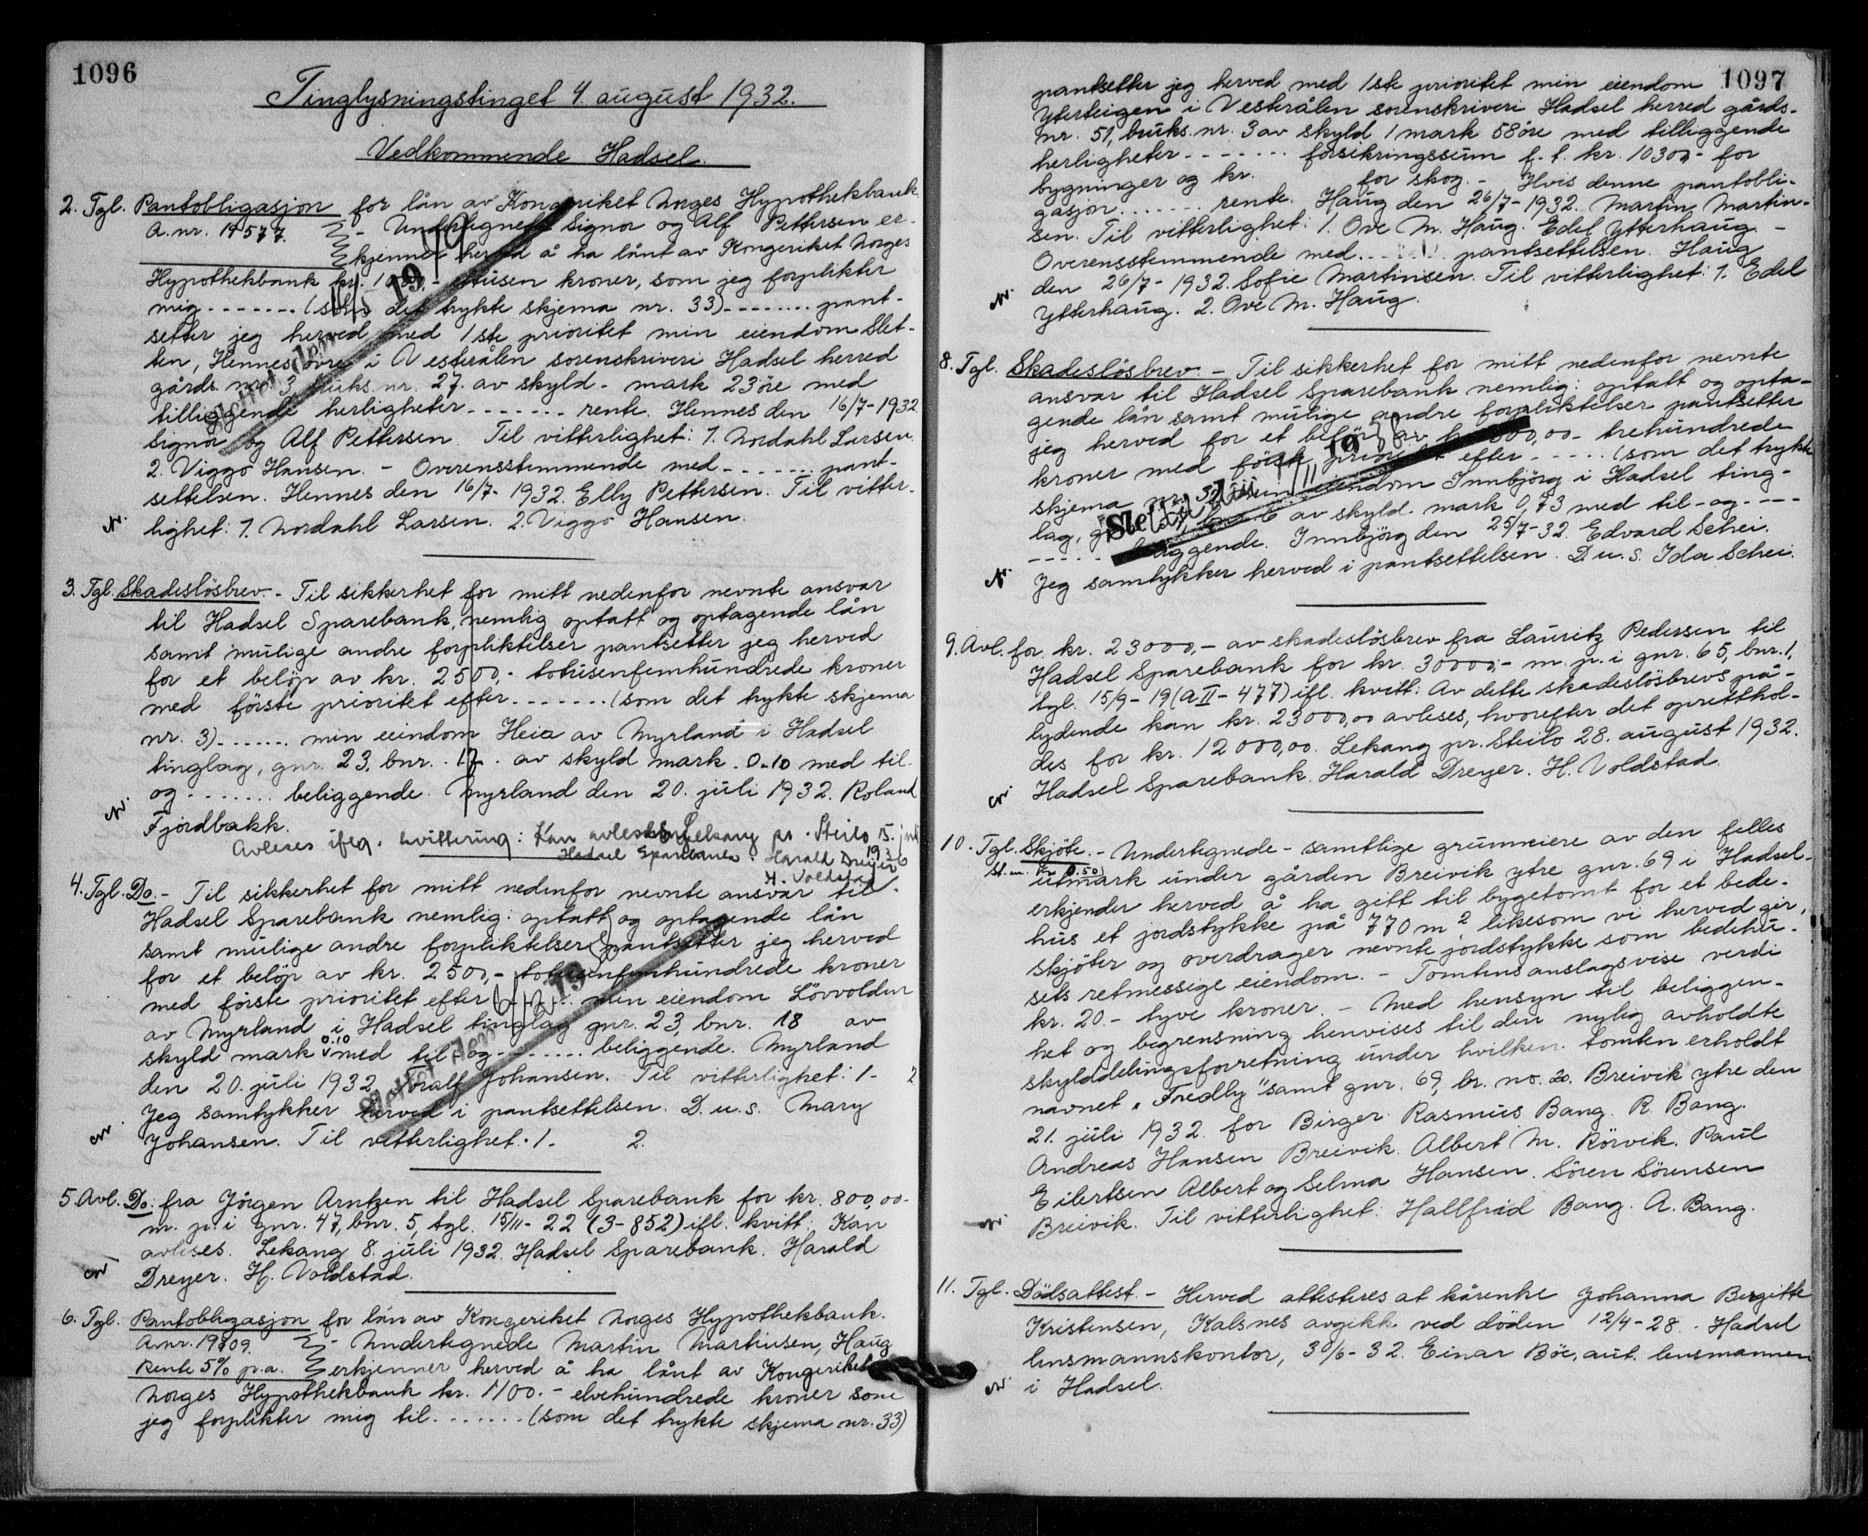 1096
Tinglysningstinget 4. august 1932.
Vedkommende Hadsel.
2. Tgl. Pantobligasjon for lån av Kongeriket Norges Hypothekbank
A. nr. 17577. - Undertegnede Signor og Alf Pettersen er-
kjenner herved å ha lånt av Kongeriket Norges
Hypothekbank kr. - tusen kroner, som jeg forplikter
mig - - - - - - - (som det trykte skjema nr. 33) - - - - - - - pant-
setter jeg herved med 1ste prioritet min eiendom Slet-
ten, Hennes øvre i Vesterålen sorenskriveri Hadsel herred
gårds nr. 3, bruks nr. 27. av skyld - mark 23 öre med
tilliggende herligheter - - - - - - - rente. Hennes den 16/7-1932
Signor og Alf Pettersen. Til vitterlighet: 1. Nordahl Larsen.
2. Viggo Hansen. - Overensstemmende med - - - - - - - pant-
settelsen. Hennes den 16/7-1932. Elly Pettersen. Til vitter-
lighet: 1. Nordahl Larsen. 2. Viggo Hansen.
Slettet den 19
3. Tgl. Skadeslösbrev. - Til sikkerhet for mitt nedenfor nevnte ansvar
til Hadsel Sparebank, nemlig optatt og optagende lån
samt mulige andre forpliktelser pantsetter jeg herved
for et belöp av kr. 2500,- totusenfemhundrede kroner
med förste prioritet efter - - - - - - - (som det trykte skjema
nr. 3) - - - - - - min eiendom Heia av Myrland i Hadsel
tinglag, gnr. 23, bnr. 17. av skyld mark. 0.10 med til-
og - - - - - - - beliggende. Myrland den 20. juli 1932. Roland
Fjordbakk.
Avleses ifлg. kvittering: Kan avleses. Lekang pr. Steilo 15. juni
1936
Hadsel Sparebank. Harald Dreyer
H. Voldstad
4. Tgl. Do. - Til sikkerhet for mitt nedenfor nevnte ansvar til
Hadsel Sparebank nemlig: optatt og optagende lån
samt mulige andre forpliktelser pantsetter jeg herved
for et belöp av kr. 2500,- totusenfemhundrede kroner
med förste prioritet efter - - - - min eiendom Lövvolden
av Myrland i Hadsel tinglag gnr. 23, bnr. 18 av
skyld mark 0.10 med til - og - - - - - - - beliggende. Myrland
den 20. juli 1932. Toralf Johansen. Til vitterlighet: 1- 2
Jeg samtykker herved i pantsettelsen. D.u.s. Mary
Johansen. Til vitterlighet. 1. 2.
Slettet den 19
5. Avl. Do. fra Jörgen Arntzen til Hadsel Sparebank for kr. 800,00-
m. p. i gnr. 47, bnr. 5, tgl. 15/11-22 (3-852) ifl. kvitt: Kan
avleses. Lekang 8. juli 1932. Hadsel Sparebank. Harald
Dreyer. H. Voldstad.
6. Tgl. Pantobligasjon for lån av Kongeriket Norges Hypothekbank.
A.nr. 19709. - Undertegnede Martin Martinsen, Haug
Rente 5% p.a. erkjenner herved å ha lånt av Kongeriket
Norges Hypothekbank kr. 1100.- elvehundrede kroner som
jeg forplikter mig til - - - - - - - (som det trykte skjema nr. 33)
1097
pantsetter jeg herved med 1ste prioritet min eiendom
Ytterteigen i Vesterålen sorenskriveri Hadsel herred gårds-
nr. 51, bruks nr. 3 av skyld 1 mark 58 öre med tilliggende
herligheter - - - - - - - forsikringssum f. t. kr. 10300,- for
bygninger og kr. for skog. - Hvis denne pantobli-
gasjon - - - - - - - rente. Haug den 26/7-1932. Martin Martin-
sen. Til vitterlighet: 1. Ove M. Haug. Edel Ytterhaug. -
Overensstemmende med - - - - pantsettelsen. Haug
den 26/7-1932. Sofie Martinsen. Til vitterlighet: 1. Edel
Ytterhaug. 2. Ove M. Haug.
8. Tgl. Skadeslösbrev. - Til sikkerhet for mitt nedenfor nevnte
ansvar til Hadsel Sparebank nemlig: optatt og opta-
gende lån samt mulige andre forpliktelser pantsetter
jeg herved for et belöp av kr. 300,00 - trehundrede
kroner med förste prioritet efter - - - - - (som det trykte
skjema nr. 3) min eiendom Innbjörg i Hadsel ting-
lag, av skyld. mark 0,73 med til - og - - - -
- - - - - beliggende. Innbjörg den 25/7-32. Edvard Schei.
Jeg samtykker herved i pantsettelsen. D.u.s. Ida Schei.
Slettet den 19
9. Avl. for kr. 23000,- av skadeslösbrev fra Lauritz Pedersen til
Hadsel Sparebank for kr. 30000,- m. p. i gnr. 65, bnr. 1,
tgl. 15/9-19 (a II-477) ifl. kvitt: Av dette skadeslösbrevs på-
lydende kan kr. 23000,00 avleses, hvorefter det opretthol-
des for kr. 12000,00. Lekang pr. Steilo 28. august 1932.
Hadsel Sparebank. Harald Dreyer. H. Voldstad.
10. Tgl. Skjöte. - Undertegnede - samtlige grunneiere av den felles
St.m. kr. 0.50) utmark under gården Breivik ytre gnr. 69 i Hadsel-
erkjender herved å ha gitt til bygetomt for et bede-
hus et jordstykke på 770 m² likesom vi herved gir,
skjöter og overdrager nevnte jordstykke som bedehu-
sets retmessige eiendom. - Tomtens anslagsvise verdi
kr. 20.- tyve kroner. - Med hensyn til beliggen-
het og begrensning henvises til den nylig avholdte
skylddelingsforretning under hvilken tomten erholdt
navnet "Fredly" samt gnr. 69, br. no. 20. Breivik ytre den
21. juli 1932. for Birger Rasmus Bang. R. Bang.
Andreas Hansen Breivik. Albert M. Rörvik. Paul
Eilertsen Albert og Selma Hansen. Sören Sörensen
Breivik. Til vitterlighet: Hallfrid Bang. A. Bang.
11. Tgl. Dödsattest. - Herved attesteres at kårenke Johanna Bergitte
Kristensen, Kalsnes avgikk ved döden 12/4-28. - Hadsel
lensmannskontor, 30/6-32. Einar Böe, aut. lensmannen
i Hadsel.